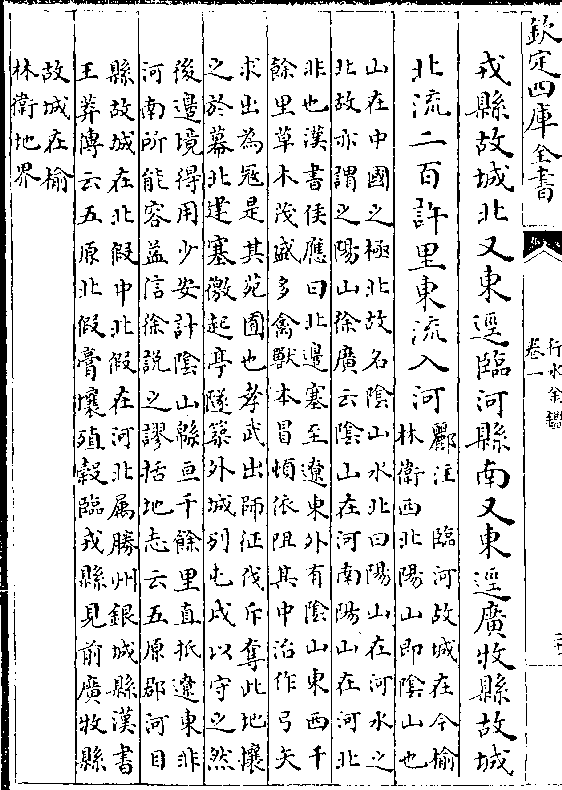 欽定四庫全書
行水金鑑
卷一
戎縣故城北又東逕臨河縣南又東逕廣牧縣故城
北流二百許里東流入河
酈注 臨河故城在今榆
林衛西北陽山即陰山也
山在中國之極北故名陰山水北曰陽山在河水之
北故亦謂之陽山徐廣云陰山在河南陽山在河北
非也漢書侯應曰北邊塞至遼東外有陰山東西千
餘里草木茂盛多禽獸本冒頓依阻其中治作弓矢
求出為冦是其苑囿也孝武出師征伐斥奪此地攘
之於幕北建塞徼起亭隧築外城列屯戍以守之然
後邊境得用少安計陰山緜亘千餘里直抵遼東非
河南所能容益信徐說之謬括地志云五原郡河目
縣故城在北假中北假在河北属勝州銀城縣漢書
王莽傳云五原北假膏壤殖糓臨戎縣見前廣牧縣
故城在榆
林衛地界